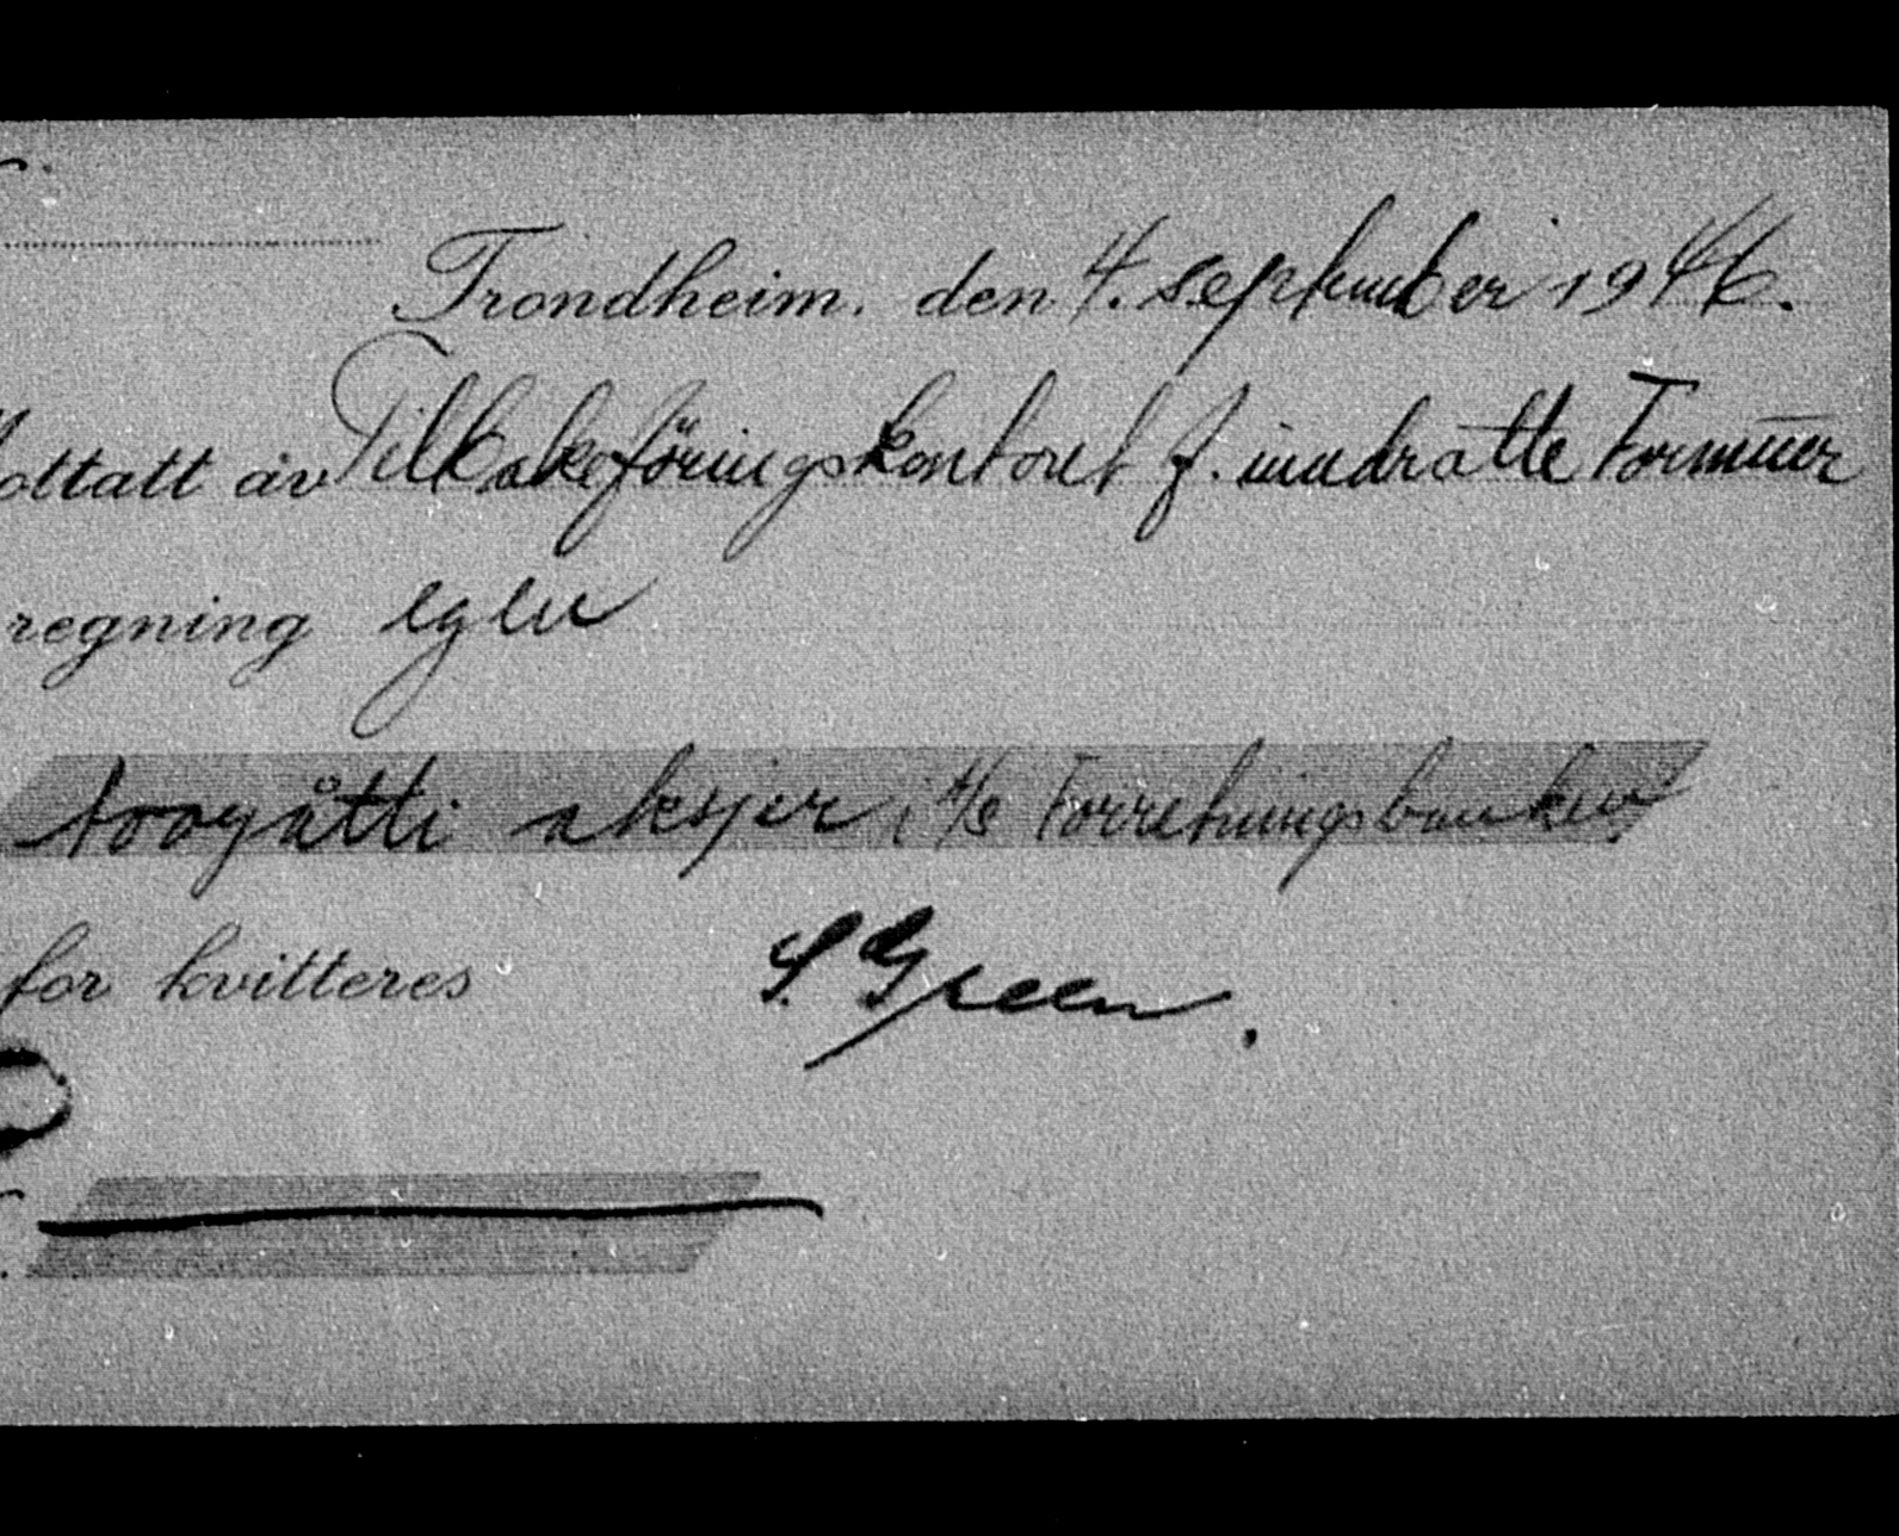 Trondheim, den 4. september 1946.
ottatt av Tilbakeföringskontoret f. inndratte Formuer
regning egen
tooogåtti aksjer i A/S Forretningsbanken
for kvitteres S. Green.